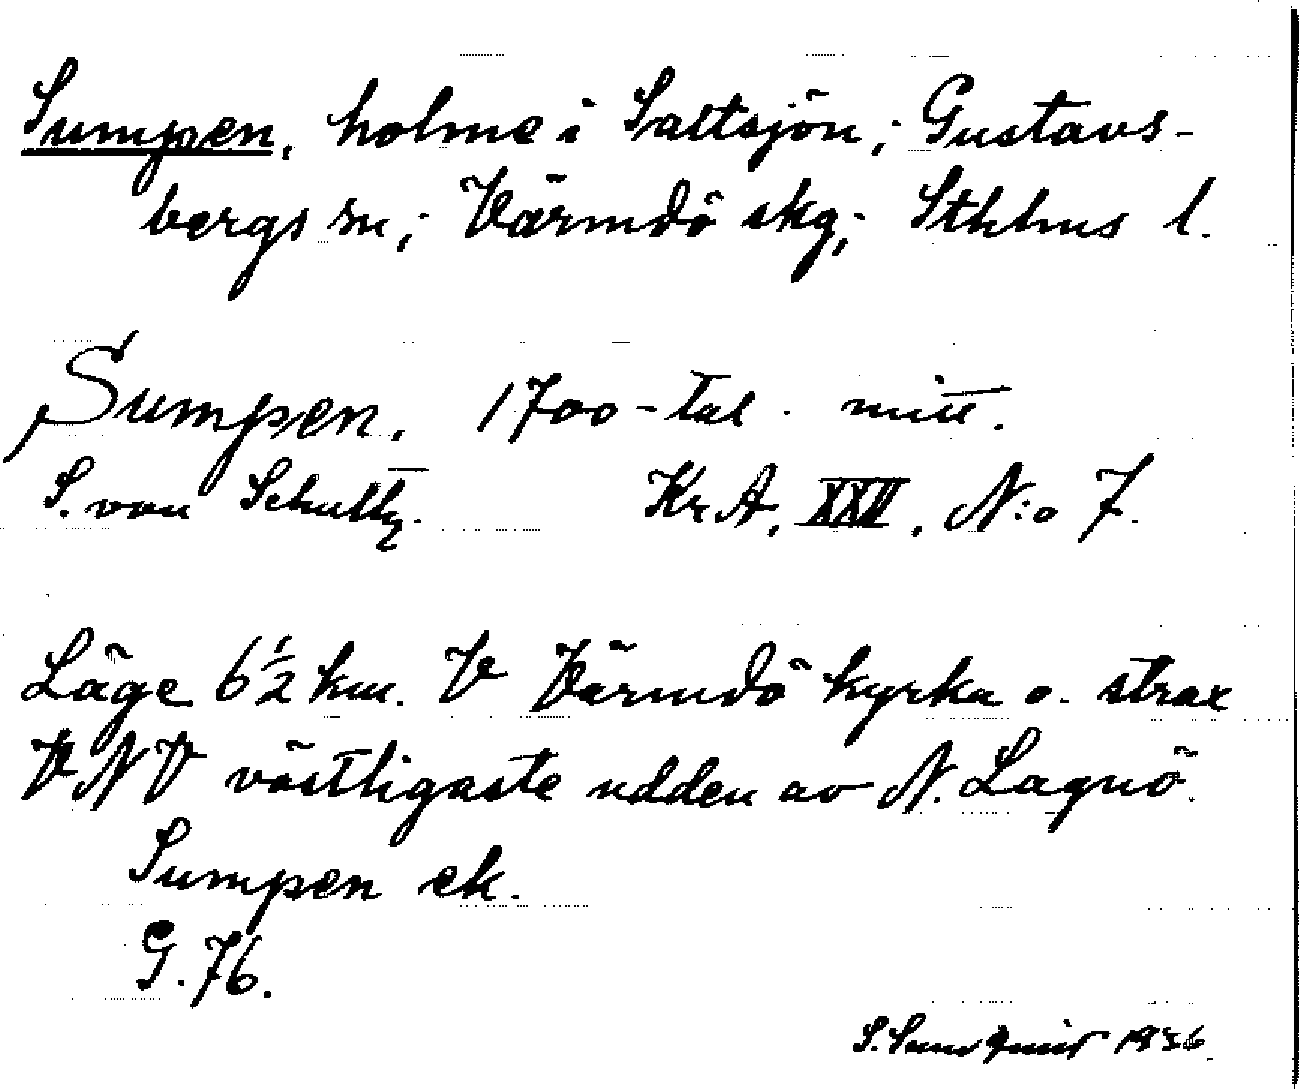 Sumpen, holme i Saltsjön; Gustavs-
bergs sn; Värmdö skg; Sthlms l.
Sumpen. 1700-tal mitt.
S. von Schultz. Kr A, XXV, N:o 7.
Läge 6½ km. V Värmdö kyrka o. strax
VNV västligaste udden av N. Lagnö.
Sumpen ek.
G. 76.
S. 1936